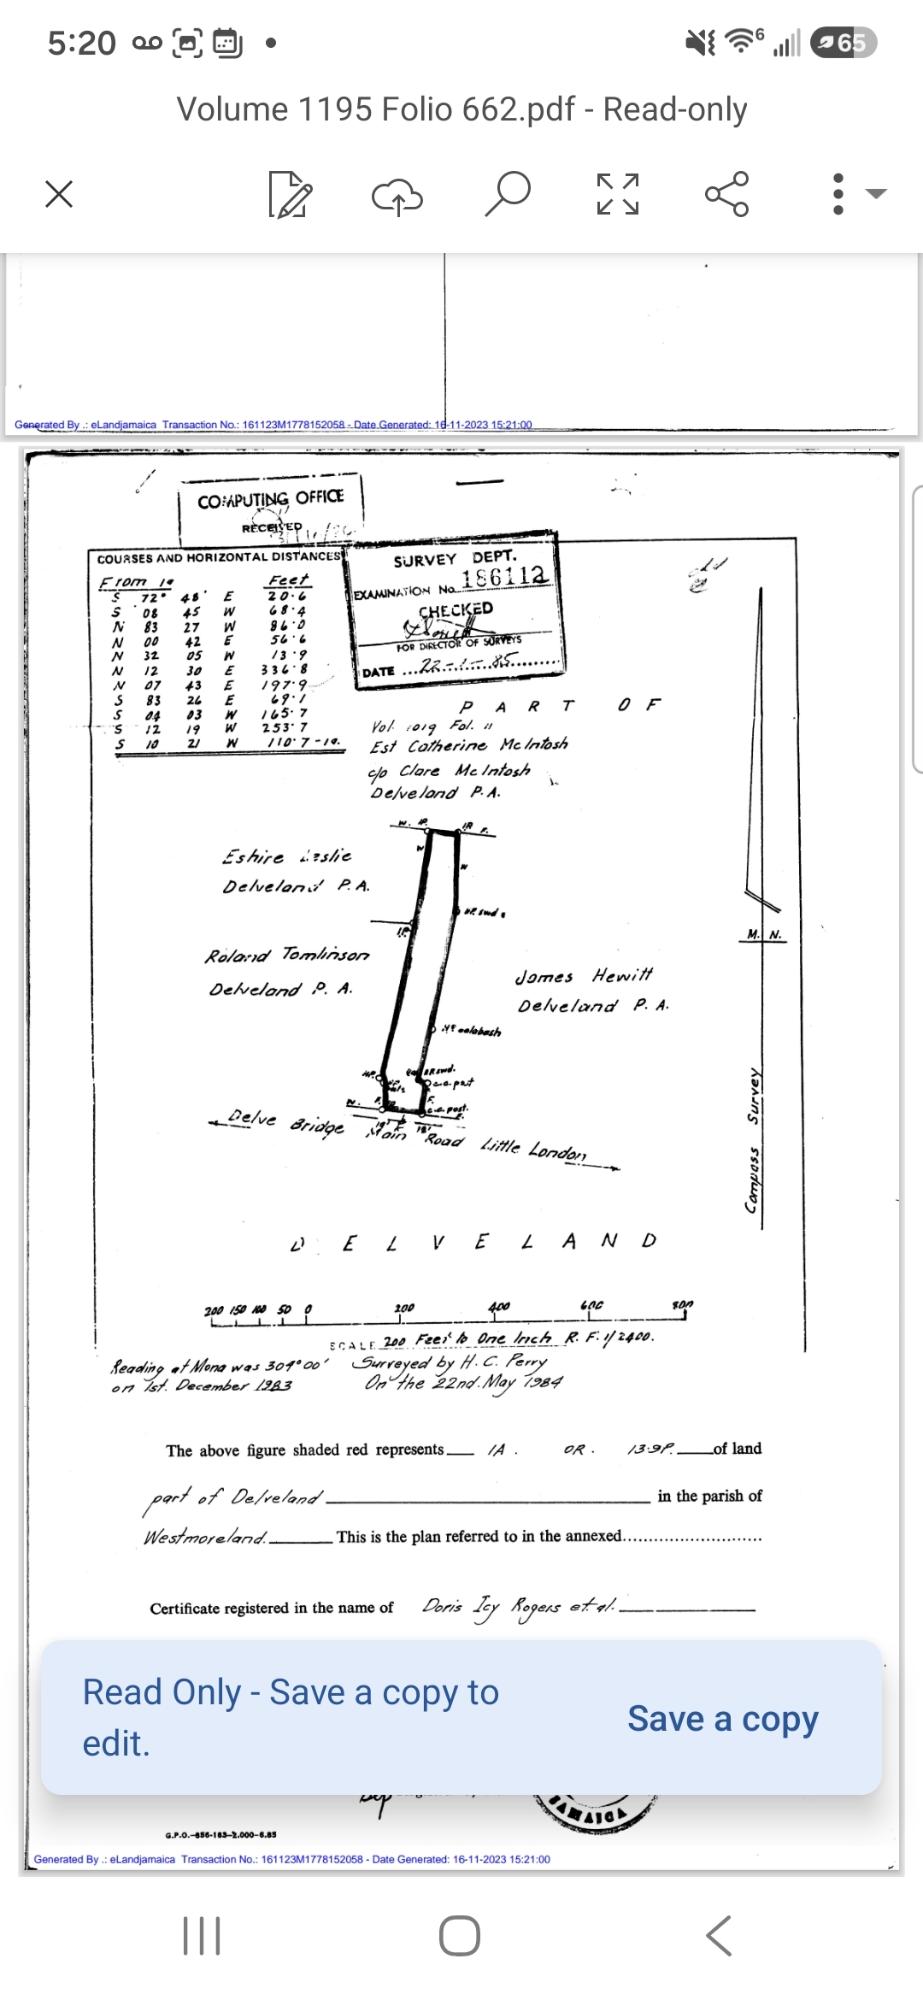 5:20
6
65
Volume 1195 Folio 662.pdf - Read-only
Generated By .: eLandjamaica Transaction No.: 161123M1778152058 - Date Generated: 16-11-2023 15:21:00
COMPUTING OFFICE
RECEIVED
COURSES AND HORIZONTAL DISTANCES
From 1°
Feet
S 72° 48' E 20·6
S 08 45 W 68·4
N 83 27 W 86·0
N 00 42 E 56·6
N 32 05 W 13·9
N 12 30 E 336·8
N 07 43 E 197·9
S 83 26 E 69·1
S 04 03 W 165·7
S 12 19 W 253·7
S 10 21 W 110·7-1°.
SURVEY DEPT.
EXAMINATION No. 186112
CHECKED
FOR DIRECTOR OF SURVEYS
DATE ...22-1-85...
PART OF
Vol. 1019 Fol. 11
Est Catherine McIntosh
c/o Clare McIntosh
Delveland P.A.
Eshire Leslie
Delveland P.A.
Roland Tomlinson
Delveland P. A.
James Hewitt
Delveland P. A.
M. N.
Compass Survey
Delve Bridge Main Road Little London
DELVELAND
200 150 100 50 0 200 400 600 800
SCALE 200 Feet to One Inch R. F. 1/2400.
Reading at Mona was 309°00'
on 1st. December 1983
Surveyed by H. C. Perry
On the 22nd. May 1984
The above figure shaded red represents 1A. OR. 13·9P. of land
part of Delveland in the parish of
Westmoreland. This is the plan referred to in the annexed
Certificate registered in the name of Doris Icy Rogers et al.
Read Only - Save a copy to
edit.
Save a copy
JAMAICA
G.P.O.—856-163—2,000-6.83
Generated By .: eLandjamaica Transaction No.: 161123M1778152058 - Date Generated: 16-11-2023 15:21:00